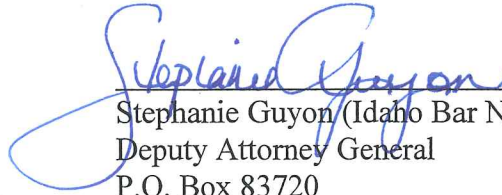 Stephanie Guyon
Stephanie Guyon (Idaho Bar N
Deputy Attorney General
P.O. Box 83720